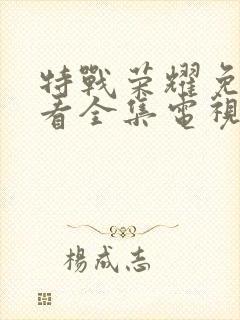 特戰荣耀免
看全集電視
楊成志